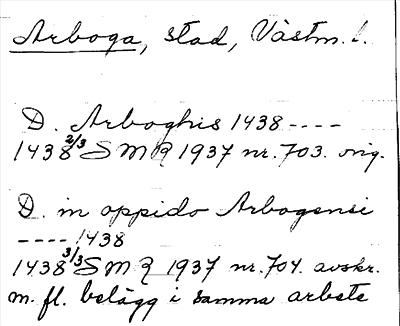 Arboga, stad, Västm. l.
D. Arboghis 1438 ----
1438 2/3 SMR 1937 nr. 703. orig.
D. in oppido Arbogensi
---- 1438
1438 3/3 SMR 1937 nr. 704. avskr.
m. fl. belägg i samma arbete